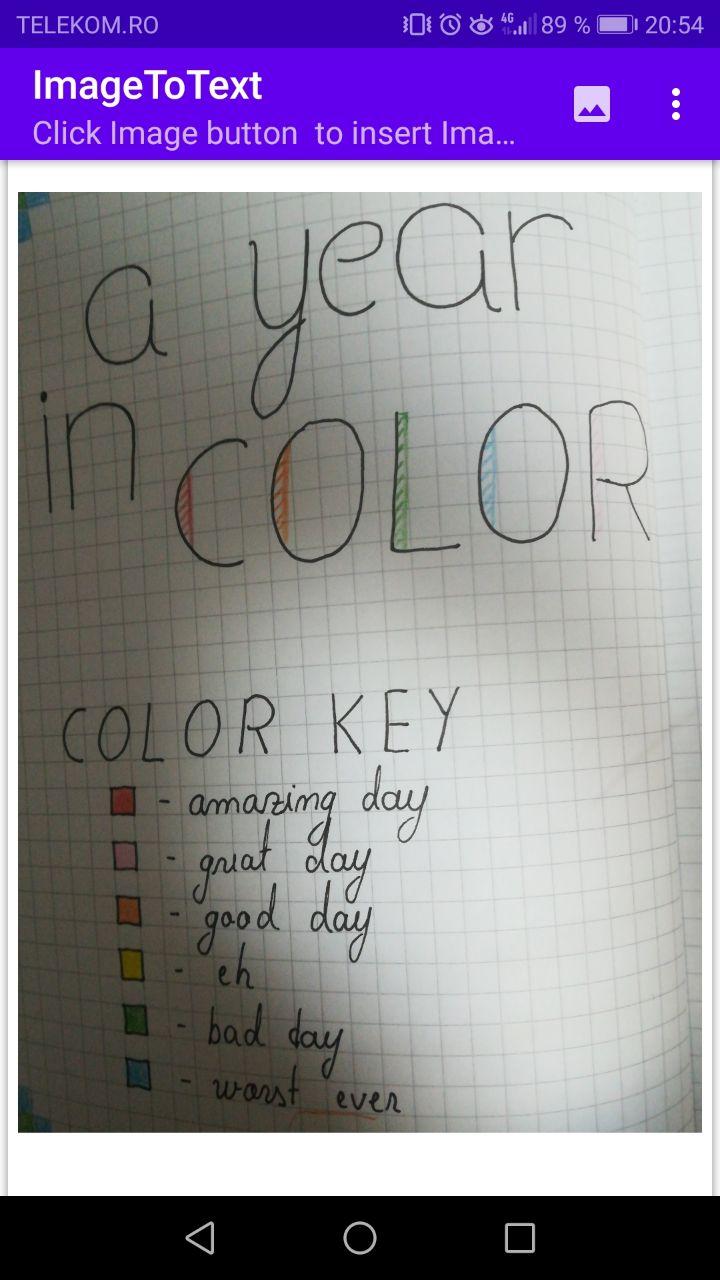 TELEKOM.RO 4G 89 % 20:54
ImageToText
Click Image button to insert Ima...
a year
in COLOR
COLOR KEY
- amazing day
- great day
- good day
- eh
- bad day
- worst ever